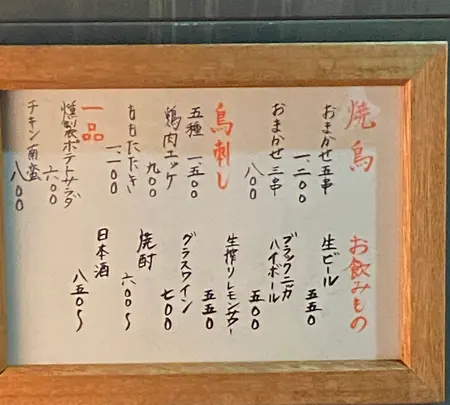 焼鳥
おまかせ五串
一、二〇〇
おまかせ三串
八〇〇
鳥刺し
五種 一、五〇〇
鶏肉エッゲ
九〇〇
ももたたき
一、一〇〇
一品
燻製ポテトサラダ
六〇〇
チキン南蛮
八〇〇
お飲みもの
生ビール
五五〇
ブラックニッカ
ハイボール
五〇〇
生搾りレモンサワー
五五〇
グラスワイン
七〇〇
焼酎
六〇〇〜
日本酒
八五〇〜